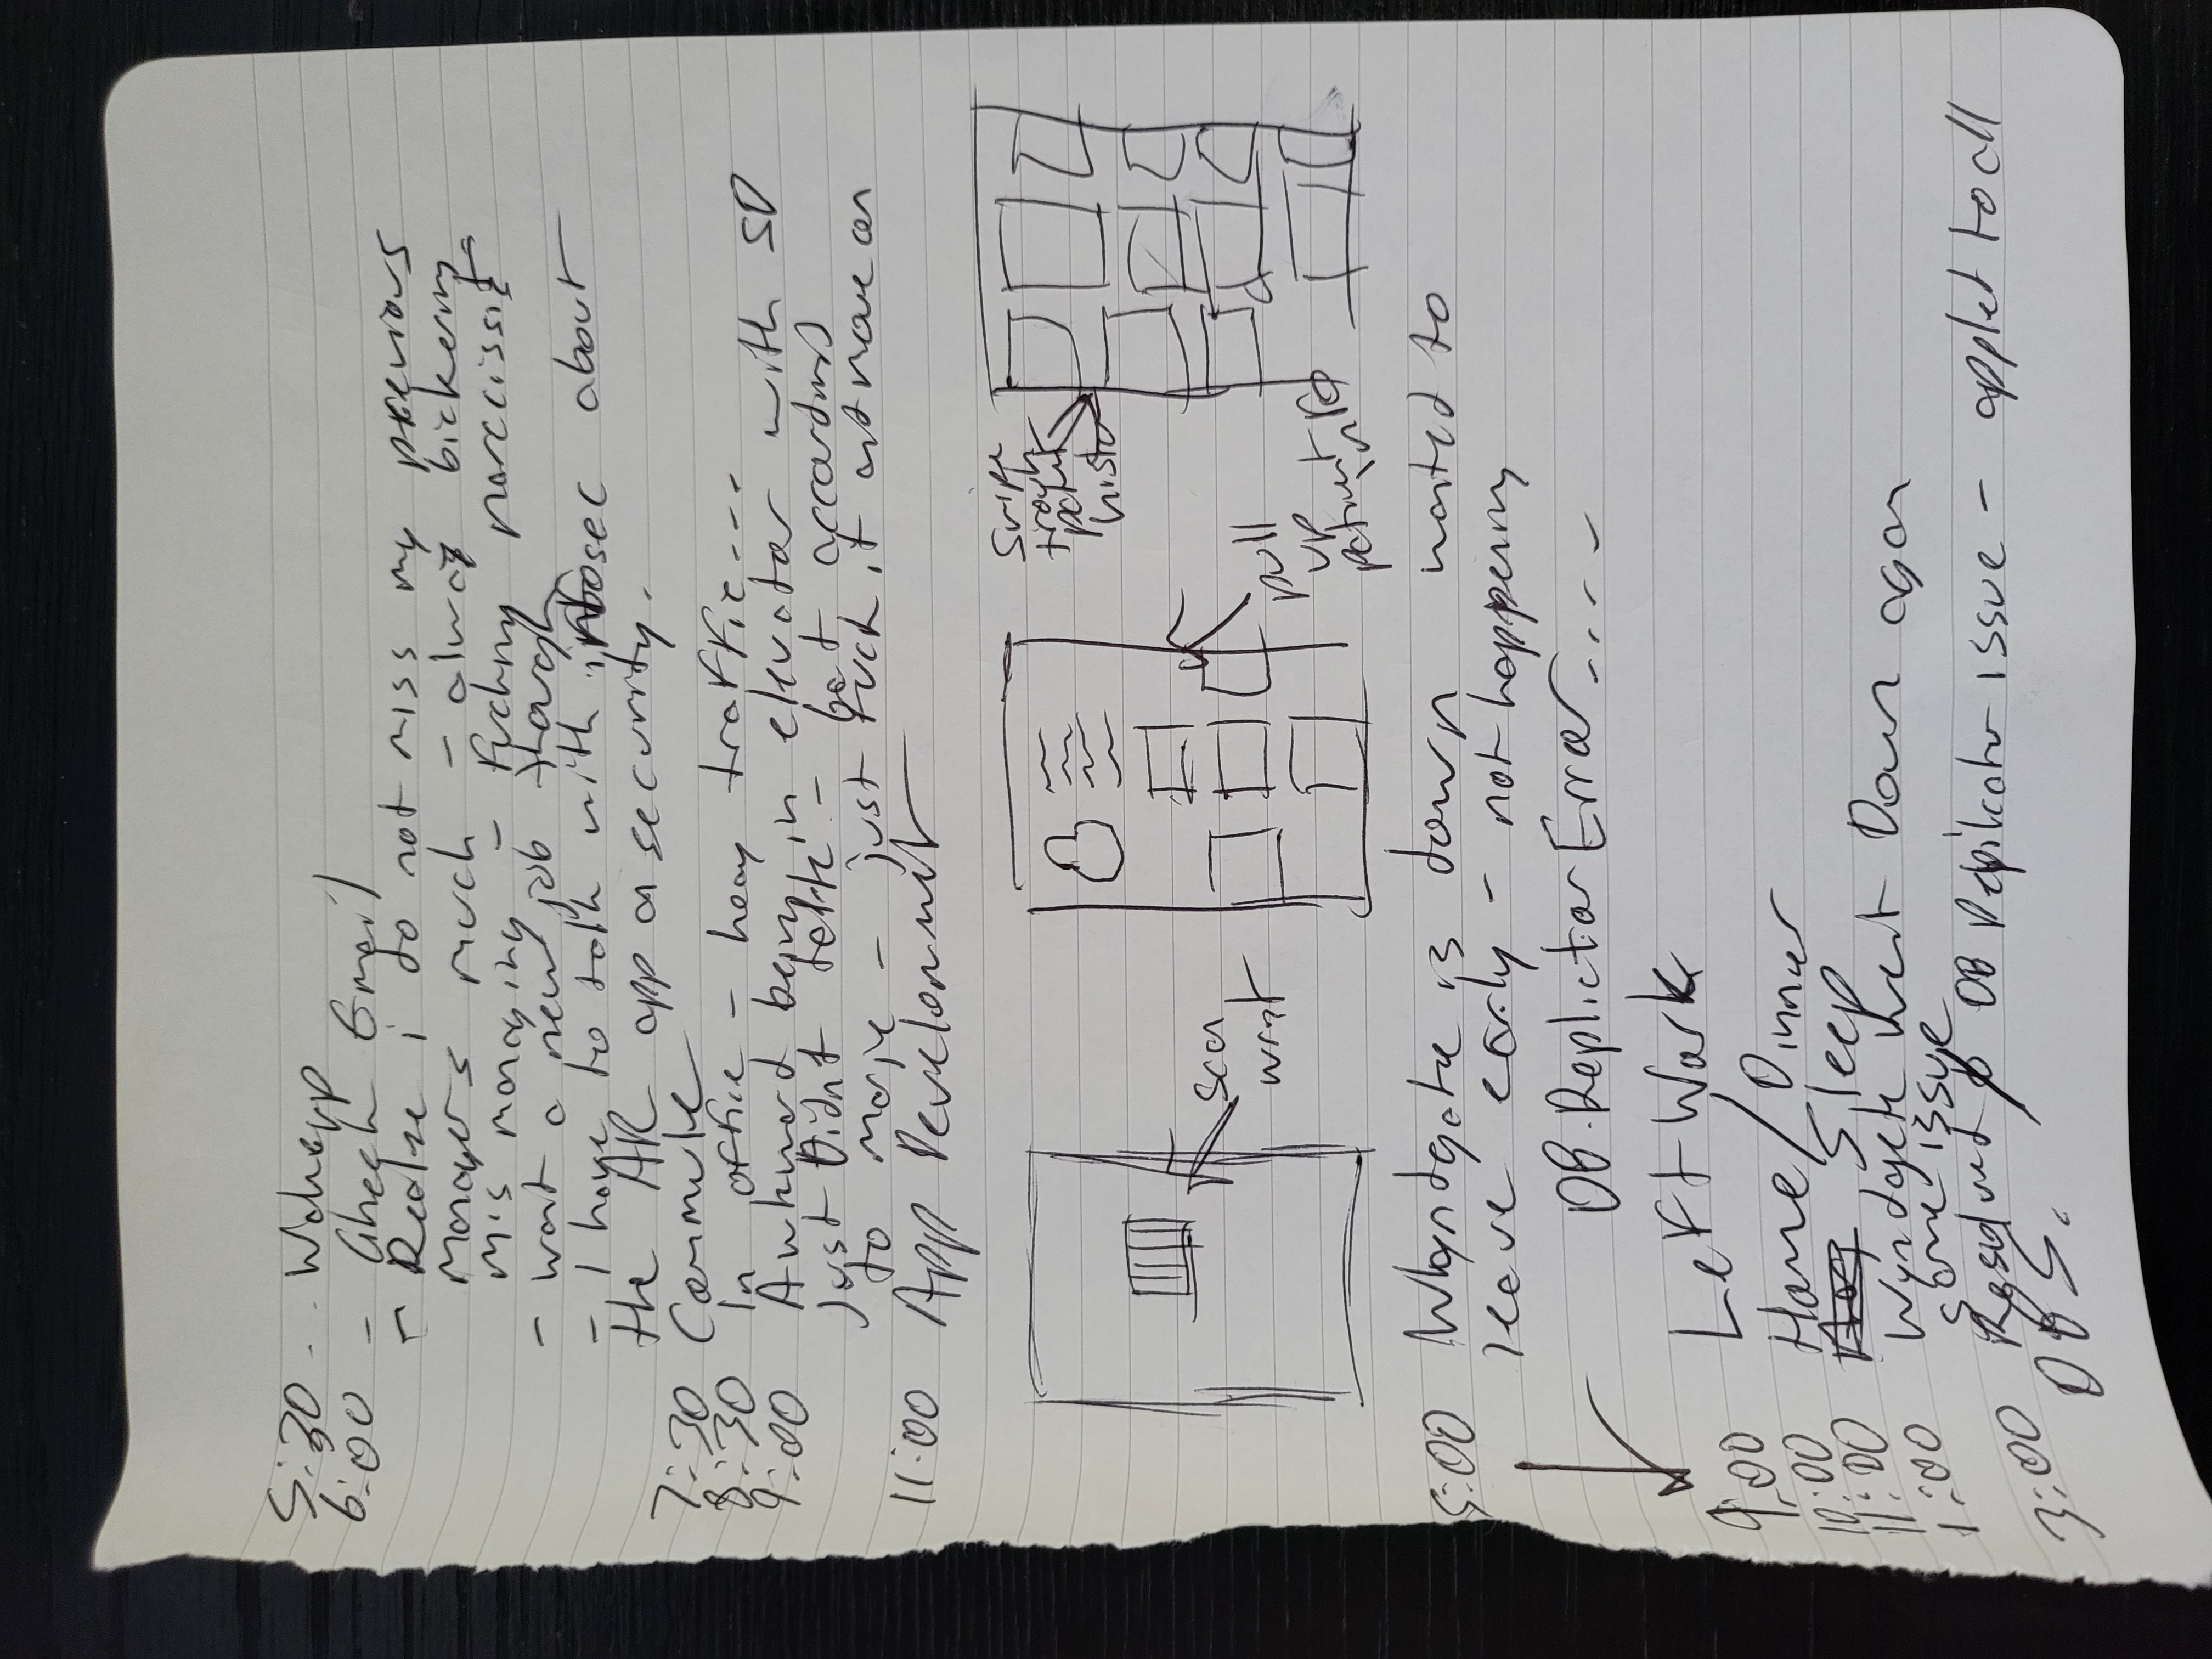 5:30 - Wakeup
6:00 - Check Email
- Realize i do not miss my previous
managers much - always bickering
mis managing - fucking narccissit
- want a new job though
- I have to talk with infosec about
the AR app on security.
7:30 Commute
8:30 In office - heavy traffic---
9:00 Awkward being in elevator with SD
just Didnt talk - but according
to - just fuck it and move on
11:00 App Development
scan
wrist
pull
up
patient info
Swipe
trough
patient
histo
5:00 Wyndgate is down wanted to
leave early - not happening
DB Replictor Error....
9:00 Left Work
10:00 Home/Dinner
11:00 Sleep
1:00 Wyndgate went Down again
same issue
3:00 Resolved DB Replicator issue - applied to all
DBS.